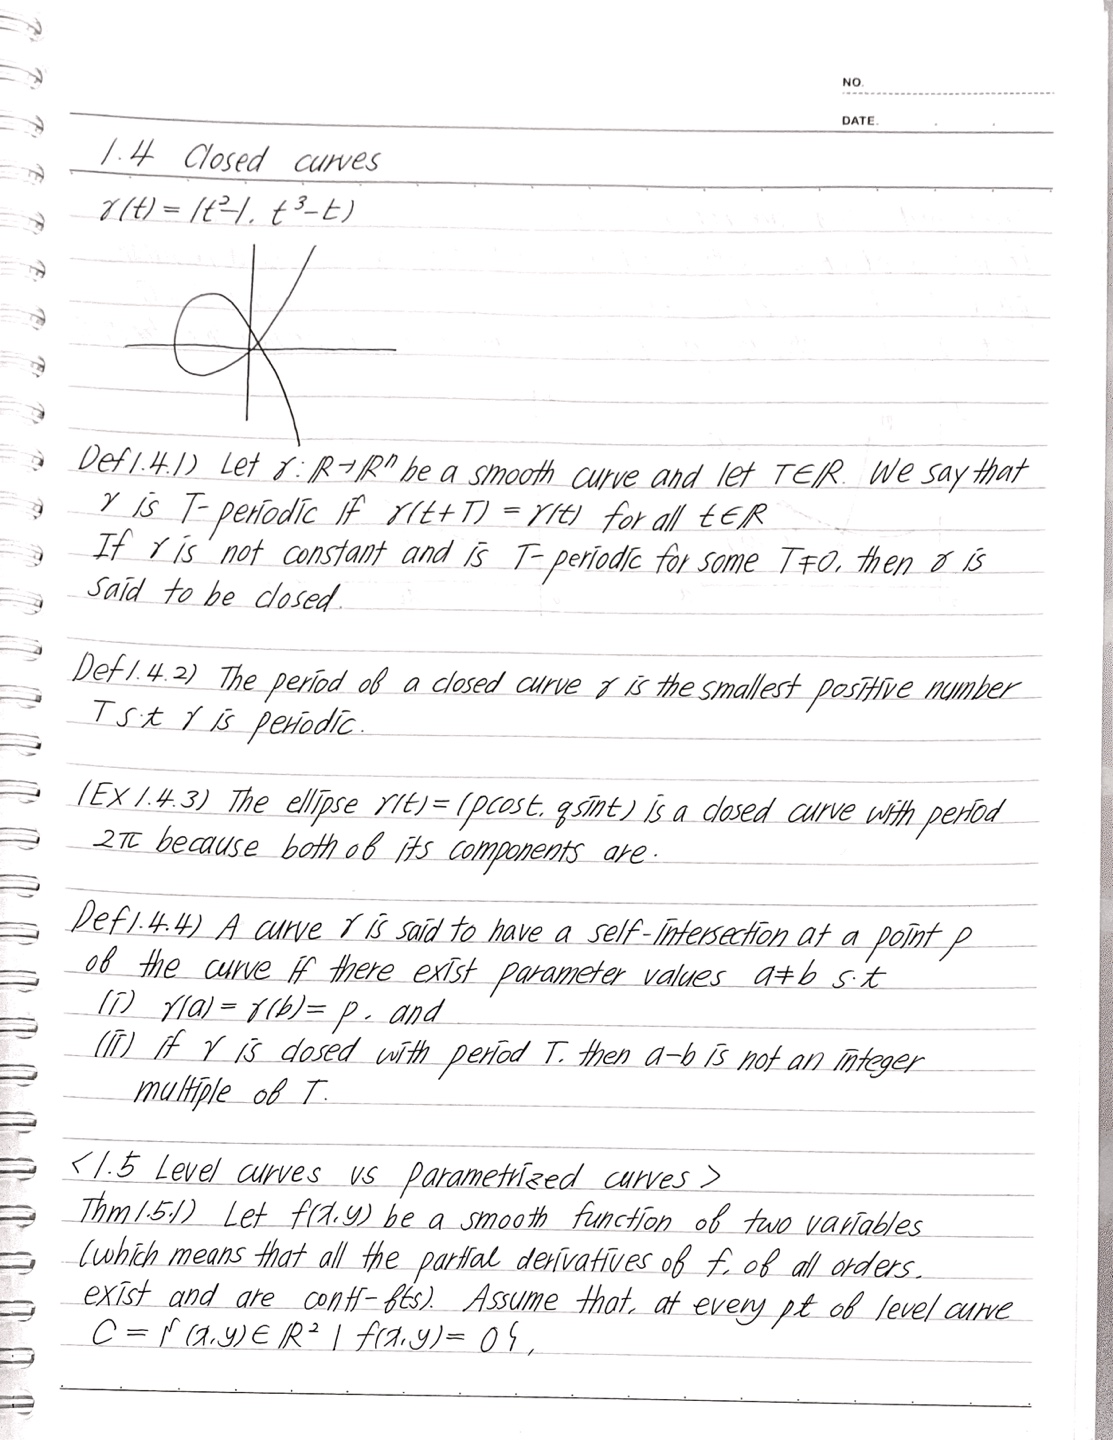 NO.
DATE.
1.4 Closed curves
γ(t) = (t²-1, t³-t)
Def 1.4.1) Let γ: ℝ→ℝⁿ be a smooth curve and let T∈ℝ. We say that
γ is T-periodic if γ(t+T) = γ(t) for all t∈ℝ
If γ is not constant and is T-periodic for some T≠0, then γ is
said to be closed.
Def 1.4.2) The period of a closed curve γ is the smallest positive number
T s.t γ is periodic.
(Ex 1.4.3) The ellipse γ(t) = (pcost, qsint) is a closed curve with period
2π because both of its components are.
Def 1.4.4) A curve γ is said to have a self-intersection at a point p
of the curve if there exist parameter values a≠b s.t
(i) γ(a) = γ(b) = p, and
(ii) if γ is closed with period T, then a-b is not an integer
multiple of T.
<1.5 Level curves vs parametrized curves>
Thm 1.5.1) Let f(x,y) be a smooth function of two variables
(which means that all the partial derivatives of f, of all orders,
exist and are conti-fts). Assume that, at every pt of level curve
C = {(x,y)∈ℝ² | f(x,y) = 0},